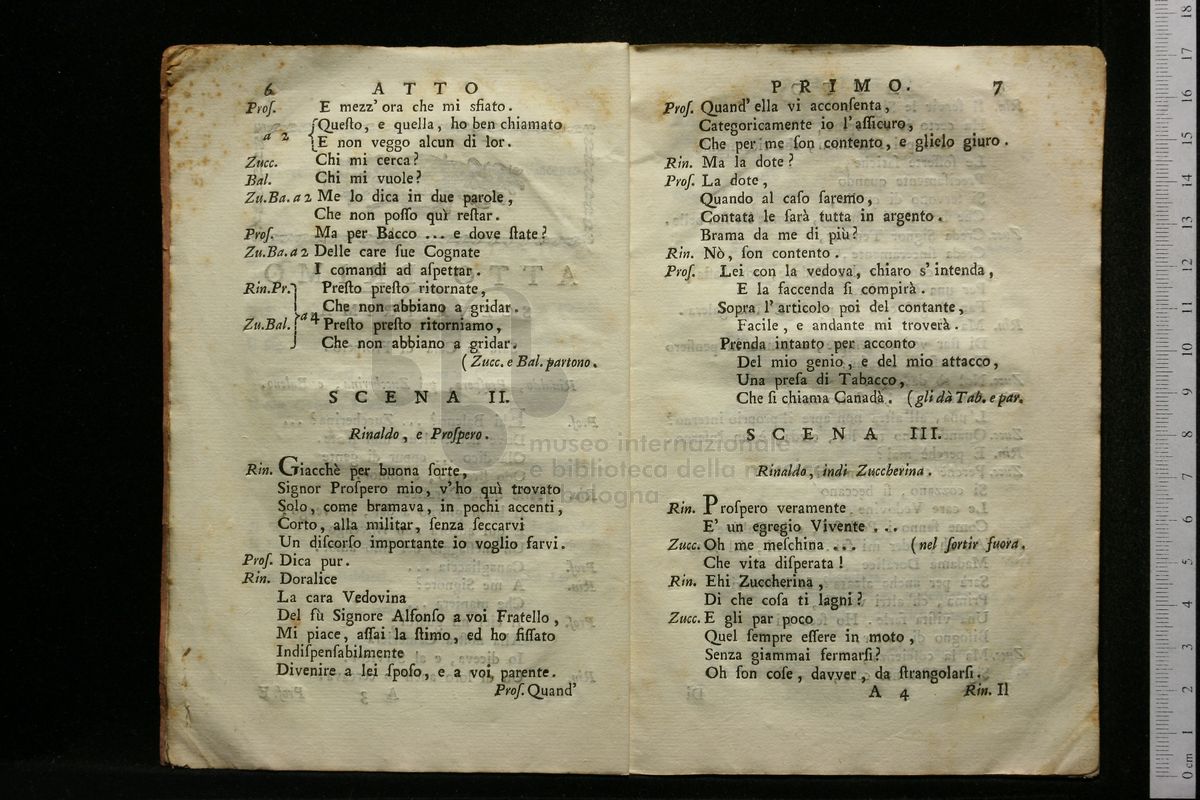 6 ATTO
Proſ. E mezz' ora che mi sfiato.
a 2 {Queſto, e quella, ho ben chiamato
E non veggo alcun di lor.
Zucc. Chi mi cerca?
Bal. Chi mi vuole?
Zu.Ba.a 2 Me lo dica in due parole,
Che non poſſo quì reſtar.
Proſ. Ma per Bacco ... e dove ſtate?
Zu.Ba.a 2 Delle care ſue Cognate
I comandi ad aſpettar.
Rin.Pr. Preſto preſto ritornate,
Che non abbiano a gridar.
Zu.Bal. }a 4 Preſto preſto ritorniamo,
Che non abbiano a gridar.
(Zucc. e Bal. partono.
SCENA II.
Rinaldo, e Proſpero.
Rin. Giacchè per buona ſorte,
Signor Proſpero mio, v'ho quì trovato
Solo, come bramava, in pochi accenti,
Corto, alla militar, ſenza ſeccarvi
Un diſcorſo importante io voglio farvi.
Proſ. Dica pur.
Rin. Doralice
La cara Vedovina
Del fù Signore Alfonſo a voi Fratello,
Mi piace, aſſai la ſtimo, ed ho fiſſato
Indiſpenſabilmente
Divenire a lei ſpoſo, e a voi parente.
Proſ. Quand'
PRIMO. 7
Proſ. Quand' ella vi acconſenta,
Categoricamente io l'aſſicuro,
Che per me ſon contento, e glielo giuro.
Rin. Ma la dote?
Proſ. La dote,
Quando al caſo ſaremo,
Contata le ſarà tutta in argento.
Brama da me di più?
Rin. Nò, ſon contento.
Proſ. Lei con la vedova, chiaro s'intenda,
E la faccenda ſi compirà.
Sopra l'articolo poi del contante,
Facile, e andante mi troverà.
Prenda intanto per acconto
Del mio genio, e del mio attacco,
Una preſa di Tabacco,
Che ſi chiama Canadà. (gli dà Tab. e par.
SCENA III.
Rinaldo, indi Zuccherina.
Rin. Proſpero veramente
E' un egregio Vivente ...
Zucc. Oh me meſchina ... (nel ſortir fuora.
Che vita diſperata!
Rin. Ehi Zuccherina,
Di che coſa ti lagni?
Zucc. E gli par poco
Quel ſempre eſſere in moto,
Senza giammai fermarſi?
Oh ſon coſe, davver, da ſtrangolarſi.
A 4 Rin. Il
museo internazionale
e biblioteca della
bologna
0 cm 1 2 3 4 5 6 7 8 9 10 11 12 13 14 15 16 17 18